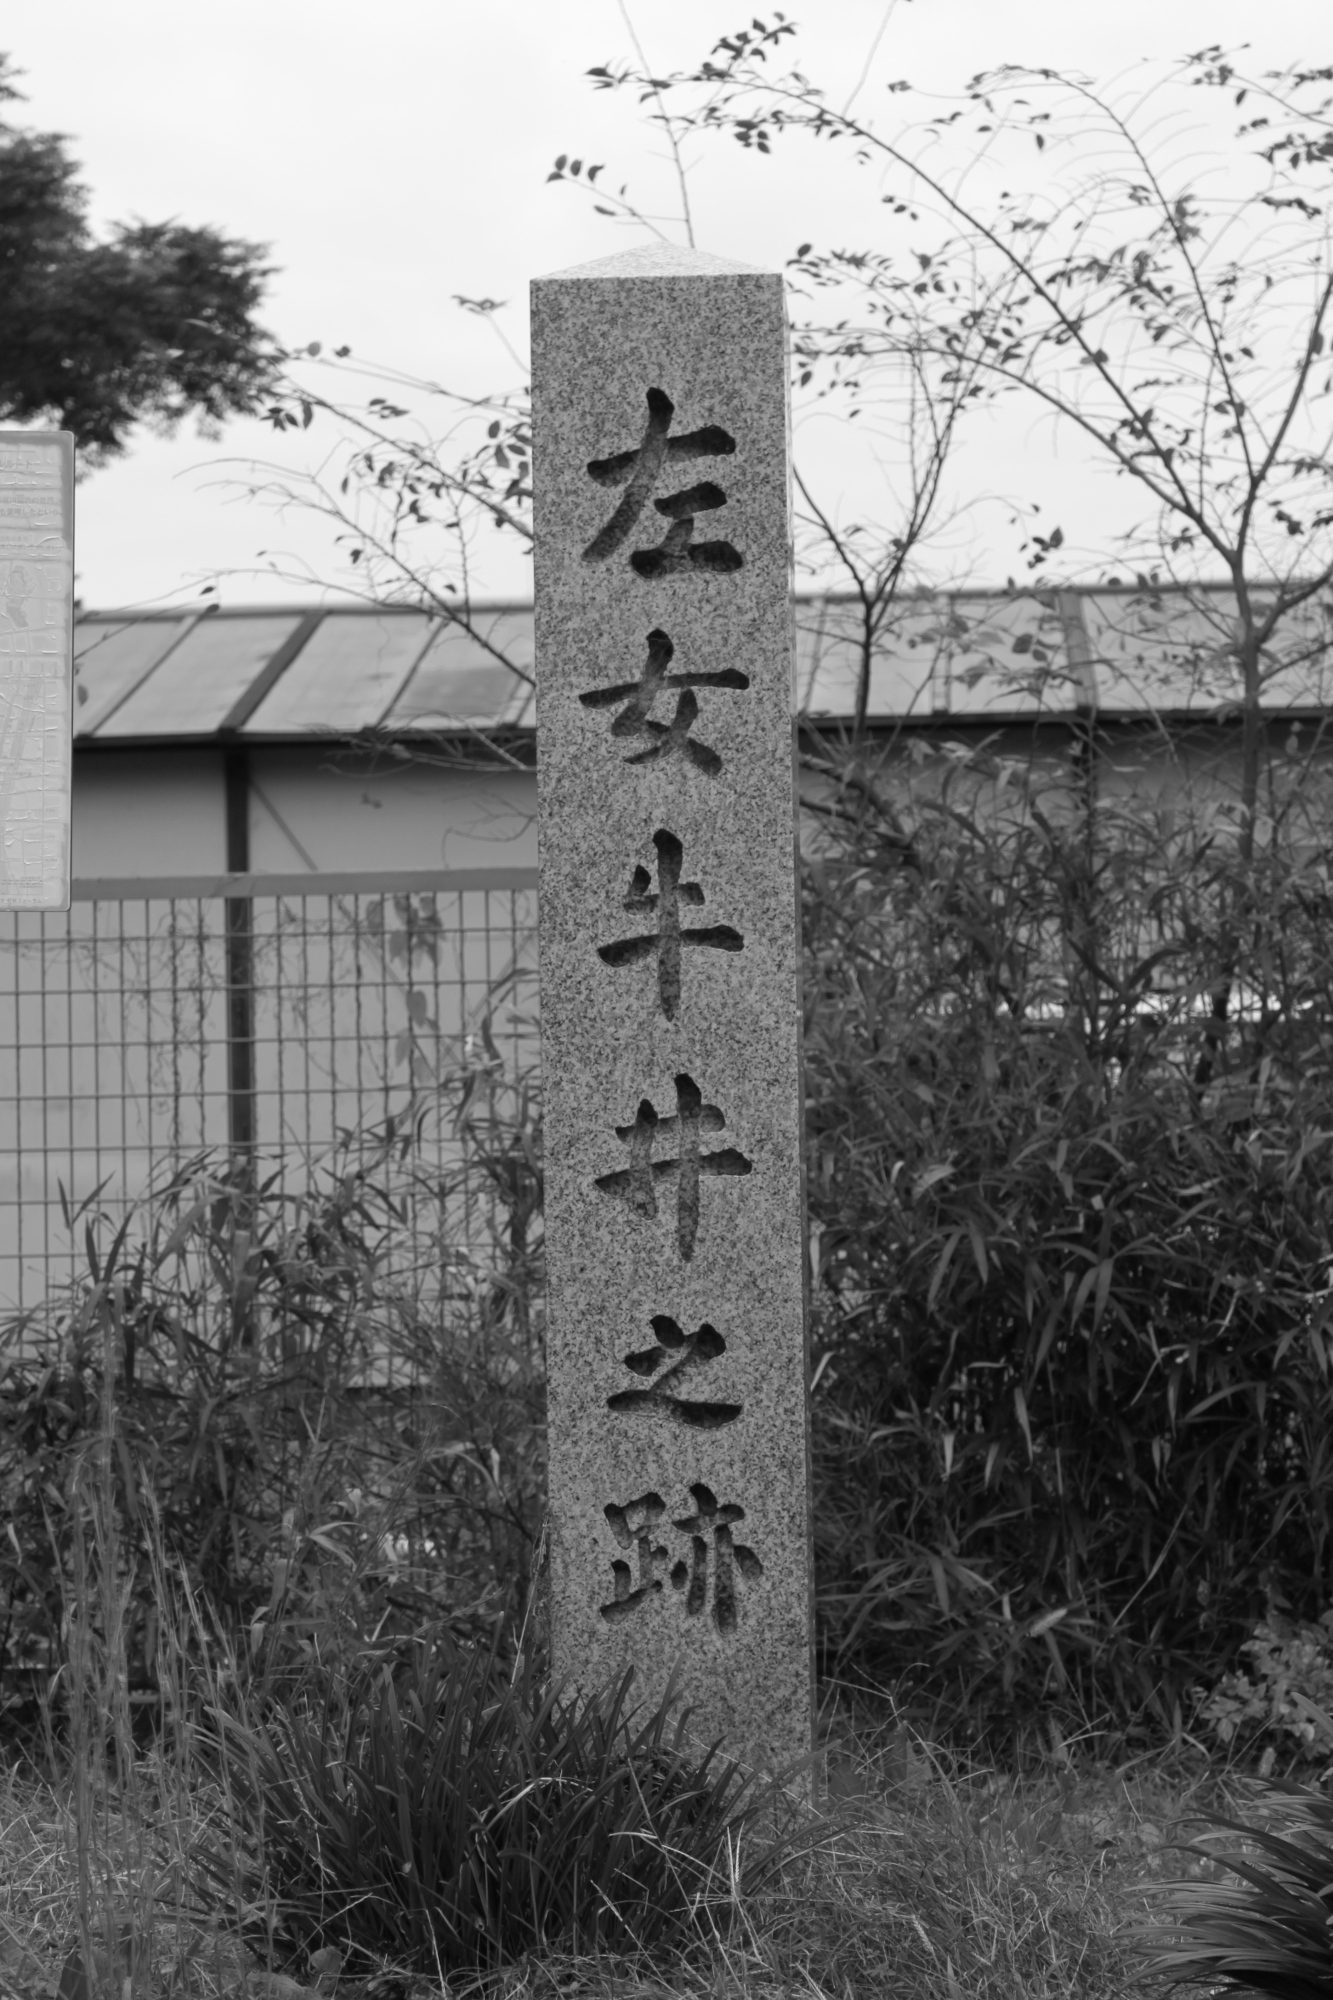 左女牛井之跡